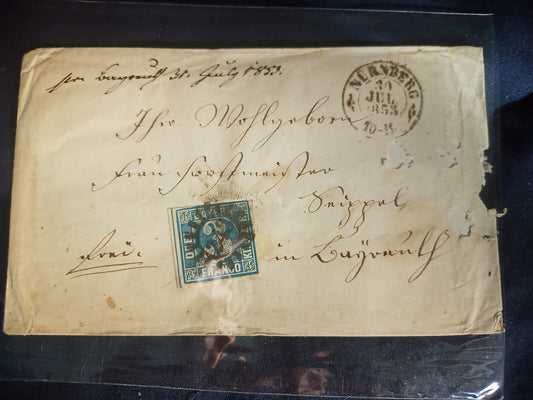 Bayreuth 31. July 1853.
NÜRNBERG
JUL
1853
Ihro Wohlgeborn
Frau Forstmeister
Seippel
in Bayreuth
3
FRANCO